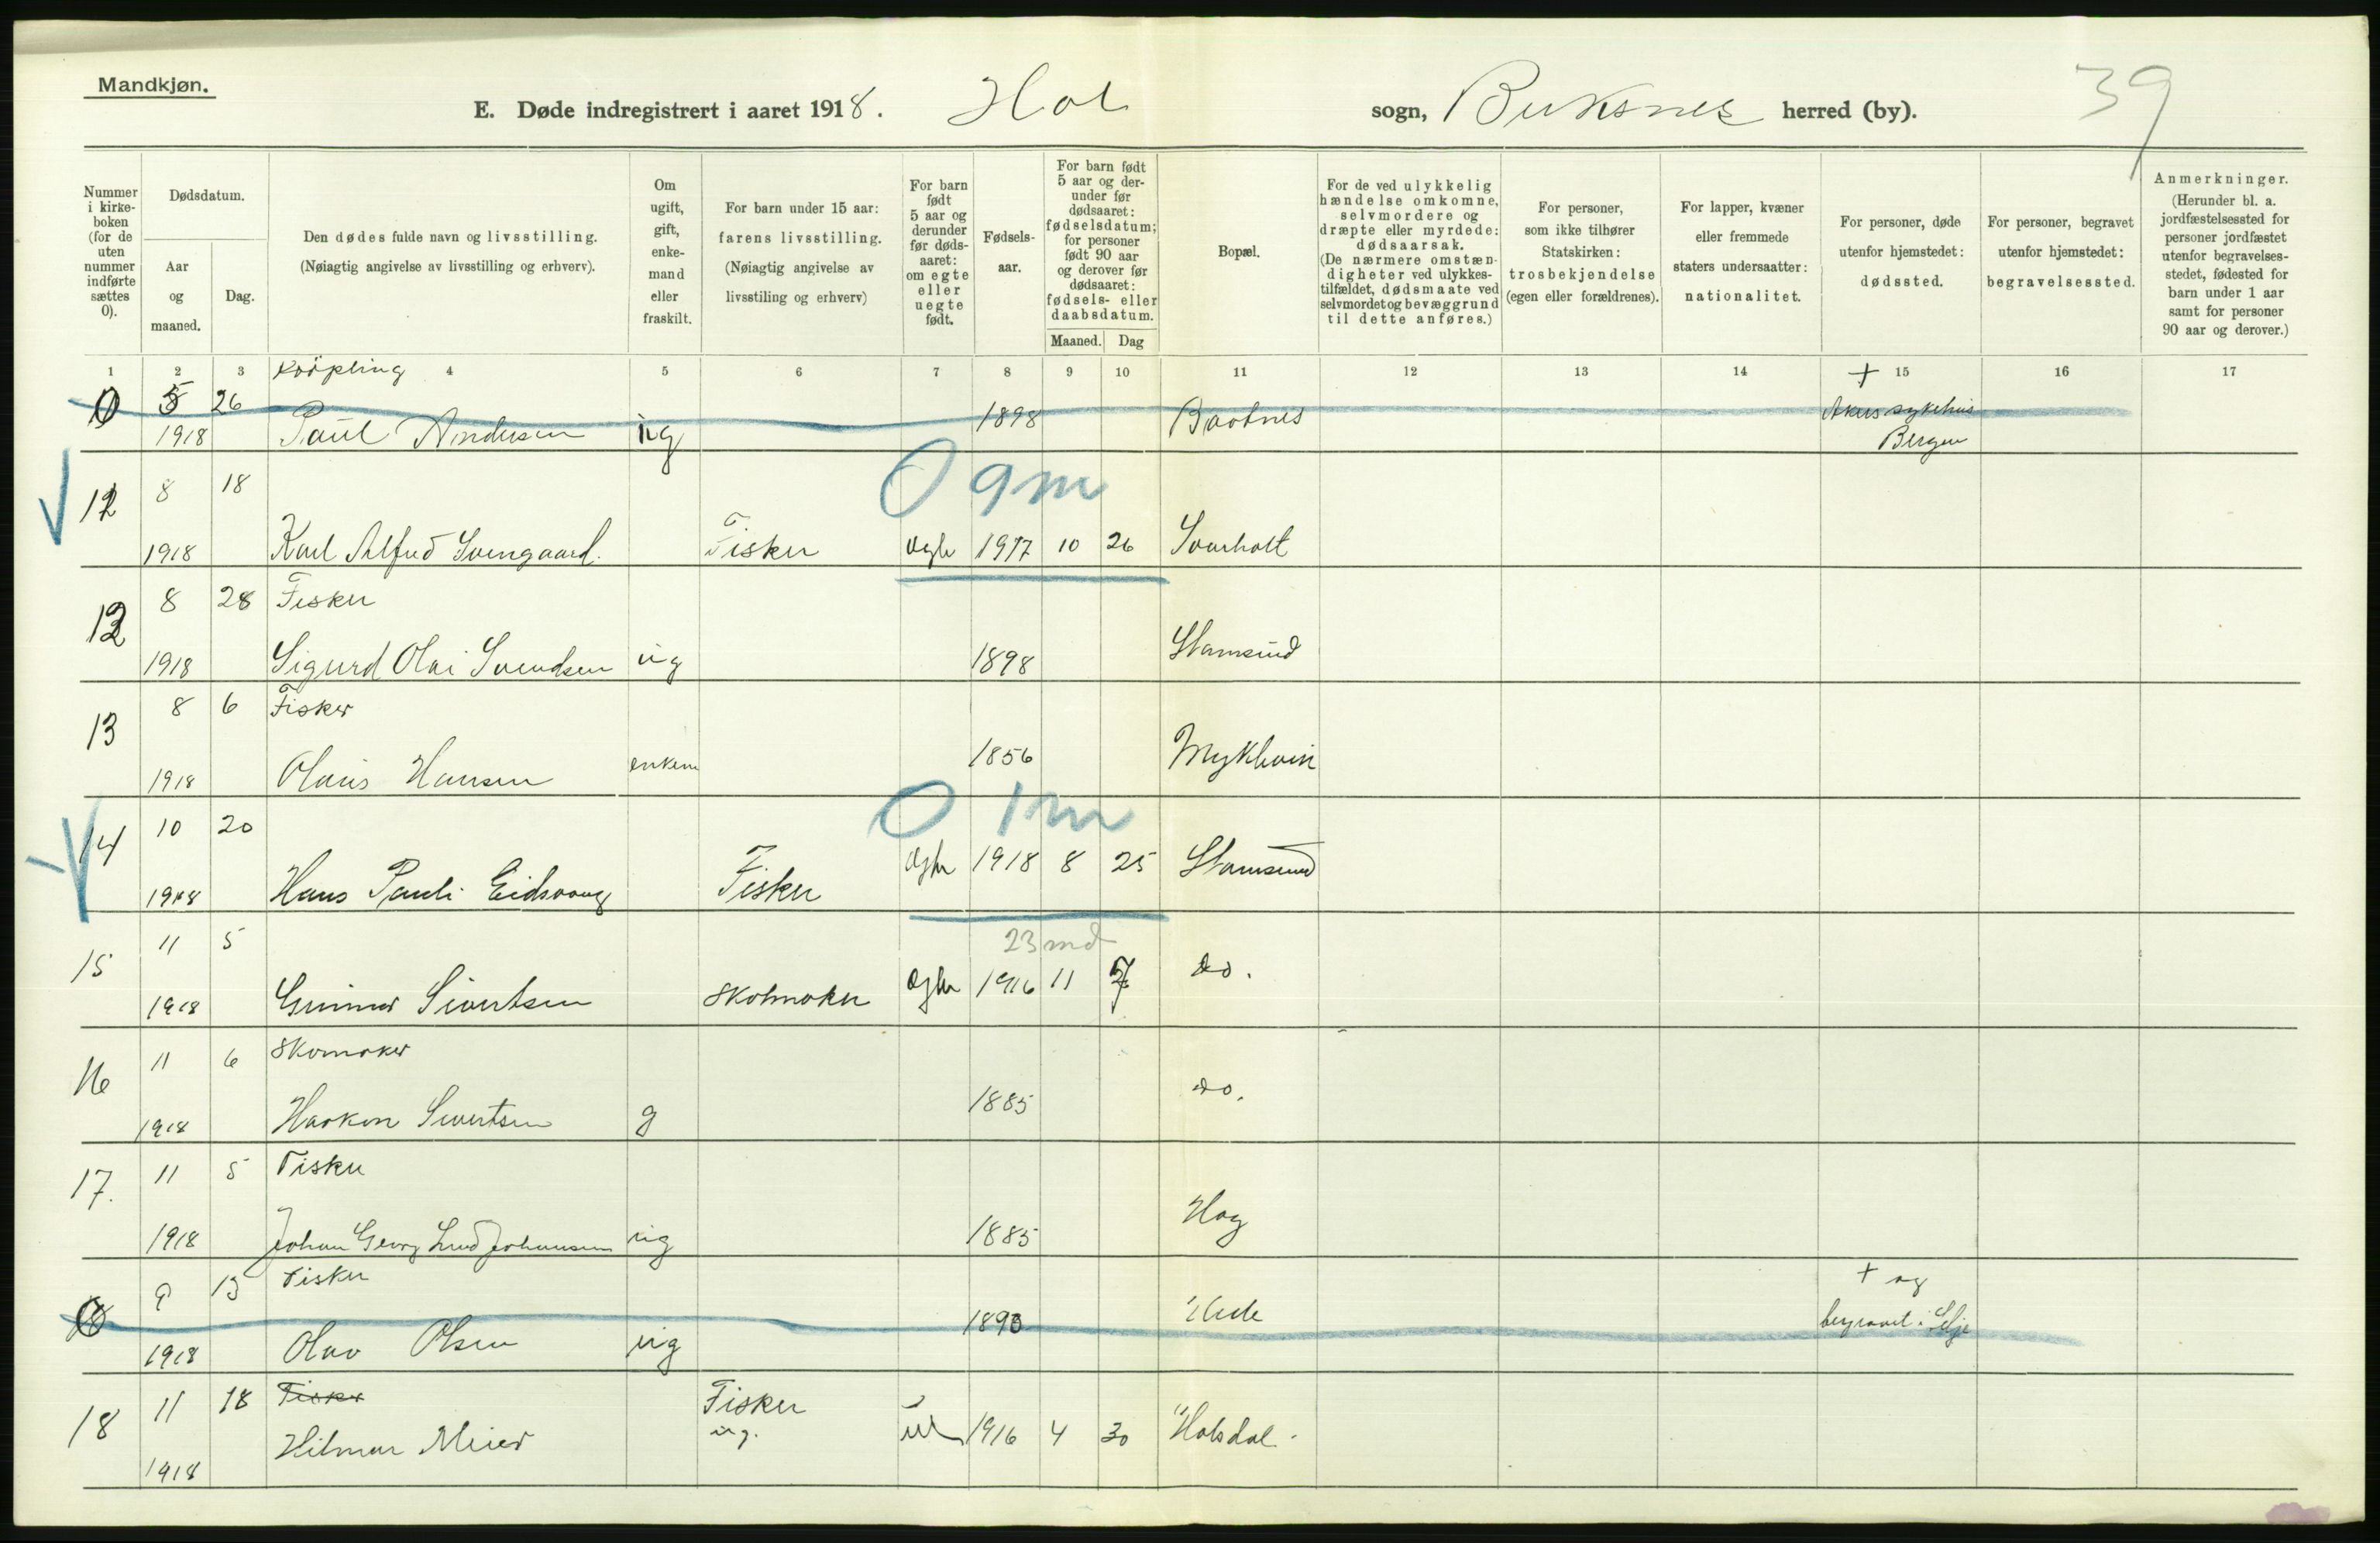 Mandkjøn.
E. Døde indregistrert i aaret 1918. Hol sogn, Buksnes herred (by). 39
Nummer i kirke-boken (for de uten nummer indførte sættes 0).
Dødsdatum.
Aar og maaned.
Dag.
Den dødes fulde navn og livsstilling.
(Nøiagtig angivelse av livsstilling og erhverv).
Om ugift, gift, enke-mand eller fraskilt.
For barn under 15 aar:
farens livsstilling.
(Nøiagtig angivelse av
livsstiling og erhverv)
For barn født 5 aar og derunder før døds-aaret: om egte eller uegte født.
Fødsels-aar.
For barn født 5 aar og der-under før dødsaaret: fødselsdatum; for personer født 90 aar og derover før dødsaaret: fødsels- eller daabsdatum.
Maaned. Dag
Bopæl.
For de ved ulykkelig hændelse omkomne, selvmordere og dræpte eller myrdede: dødsaarsak. (De nærmere omstæn-digheter ved ulykkes-tilfældet, dødsmaate ved selvmordet og bevæggrund til dette anføres.)
For personer, som ikke tilhører Statskirken: trosbekjendelse (egen eller forældrenes).
For lapper, kvæner eller fremmede staters undersaatter: nationalitet.
For personer, døde utenfor hjemstedet: dødssted.
For personer, begravet utenfor hjemstedet: begravelsessted.
Anmerkninger.
(Herunder bl. a. jordfæstelsessted for personer jordfæstet utenfor begravelses-stedet, fødested for barn under 1 aar samt for personer 90 aar og derover.)
1 2 3 4 5 6 7 8 9 10 11 12 13 14 15 16 17
0 5 26 +
1918 Paul Andersen ug 1898 Baotnes sykehus
Bergen
0 9 m
12 8 18
1918 Karl Alfred Svengaard. Fisker 1917 10 26 Svarholt
12 8 28 Fisker
1918 Sigurd Olai Svendsen ug 1898 Stamsund
13 8 6 Fisker
1918 Olaus Hansen enkem 1856
0 1 m
14 10 20
1918 Hans Pauli Fisker 1918 8 25 Stamsund
23 md
15 11 5
1918 Gunnar Sivertsen Skomaker 1916 11 7 do.
16 11 6 Skomaker
1918 Haakon Sivertsen g 1885 do.
17. 11 5 Fisker
1918 Johan Georg Lind Johansen ug 1885 Hag
0 9 13 Fisker + og
1918 Olav Olsen ug 1893 Ure begravet i Selje
18 11 18 Fisker Fisker
ug.
1918 Hilmar Meier 1916 4 30 Holsdal